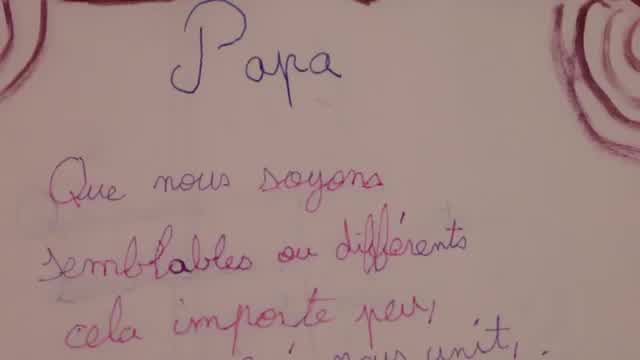 Papa
Que nous soyons
semblables ou différents
cela importe peu,
nous unit,